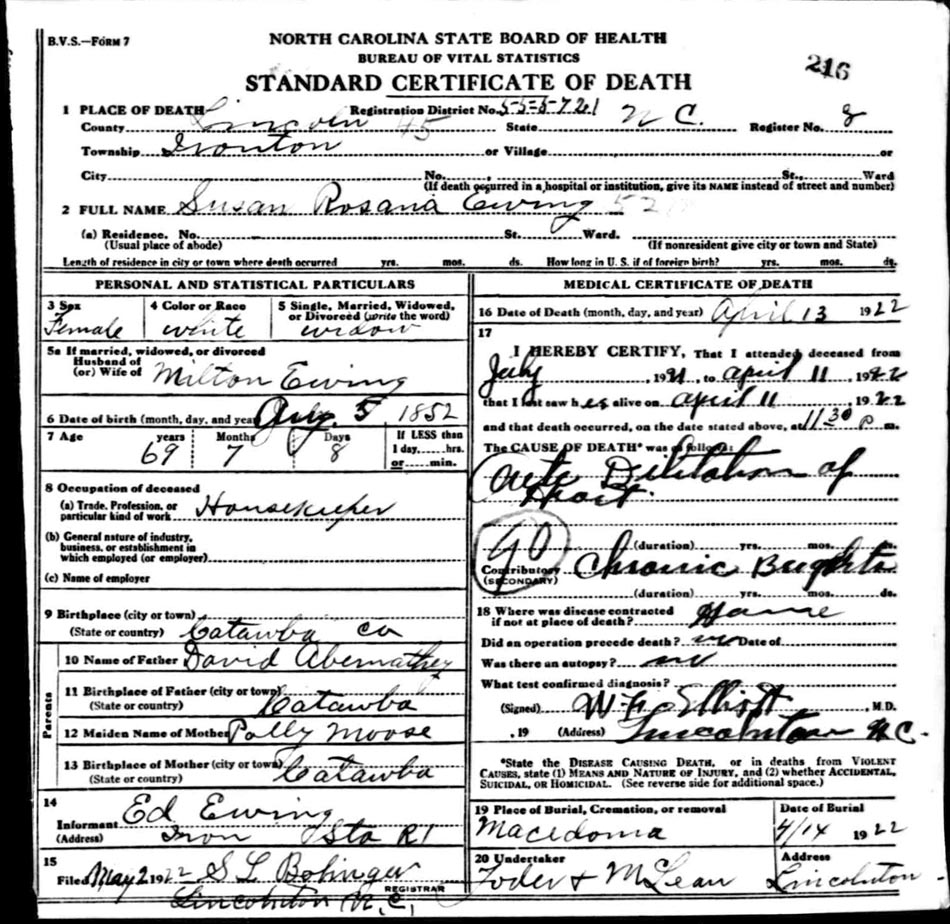 B.V.S.—FORM 7
NORTH CAROLINA STATE BOARD OF HEALTH
BUREAU OF VITAL STATISTICS
STANDARD CERTIFICATE OF DEATH
216
1 PLACE OF DEATH Registration District No. 55-5-5721
County Lincoln 45 State N C. Register No. 8
Township Ironton or Village or
City No. , St., Ward
(If death occurred in a hospital or institution, give its NAME instead of street and number)
2 FULL NAME Susan Rosana Ewing 52
(a) Residence. No. St. Ward.
(Usual place of abode) (If nonresident give city or town and State)
Length of residence in city or town where death occurred yrs. mos. ds. How long in U. S. if of foreign birth? yrs. mos. ds.
PERSONAL AND STATISTICAL PARTICULARS
3 Sex 4 Color or Race 5 Single, Married, Widowed, or Divorced (write the word)
Female white widow
5a If married, widowed, or divorced
Husband of
(or) Wife of Milton Ewing
6 Date of birth (month, day, and year) Aug. 5 1852
7 Age years Months Days If LESS than
69 7 8 1 day......hrs.
or......min.
8 Occupation of deceased
(a) Trade, Profession, or
particular kind of work Housekeeper
(b) General nature of industry,
business, or establishment in
which employed (or employer)
(c) Name of employer
9 Birthplace (city or town)
(State or country) Catawba co
Parents
10 Name of Father David Abernathey
11 Birthplace of Father (city or town)
(State or country) Catawba
12 Maiden Name of Mother Polly Moose
13 Birthplace of Mother (city or town) Catawba
(State or country)
14
Informant Ed Ewing
(Address) Iron Sta R1
15
Filed May 2 1922 S L Bolinger
REGISTRAR
Lincolnton N.C.
MEDICAL CERTIFICATE OF DEATH
16 Date of Death (month, day, and year) April 13 1922
17
I HEREBY CERTIFY, That I attended deceased from
July , 1921, to april 11 , 1922
that I last saw her alive on april 11 , 1922
and that death occurred, on the date stated above, at 11:30 P m.
The CAUSE OF DEATH* was as follows:
Acute Dilitation of
Heart.
90
(duration) yrs. mos. ds.
Contributory Chronic Brights
(SECONDARY)
(duration) yrs. mos. ds.
18 Where was disease contracted
if not at place of death? Home
Did an operation precede death? no Date of
Was there an autopsy? no
What test confirmed diagnosis?
(Signed) W. F. Elliott , M.D.
, 19 (Address) Lincolnton N.C.
*State the DISEASE CAUSING DEATH, or in deaths from VIOLENT
CAUSES, state (1) MEANS AND NATURE OF INJURY, and (2) whether ACCIDENTAL,
SUICIDAL, OR HOMICIDAL. (See reverse side for additional space.)
19 Place of Burial, Cremation, or removal Date of Burial
Macedonia 4/14 1922
20 Undertaker Address
Yoder & McLean Lincolnton